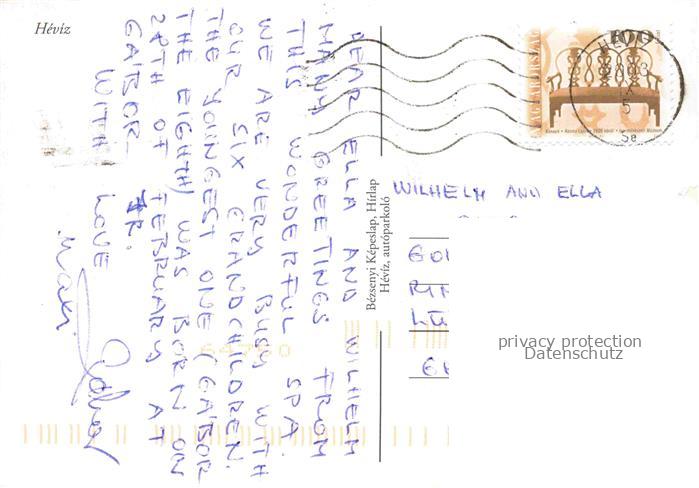 Hévíz
DEAR ELLA AND WILHELM
MANY GREETINGS FROM
THIS WONDERFUL SPA.
WE ARE VERY BUSY WITH
OUR SIX GRANDCHILDREN.
THE YOUNGEST ONE (GÁBOR
THE EIGHTH) WAS BORN ON
28TH OF FEBRUARY AT
GÁBOR JR.
WITH LOVE
Bézsenyi Képeslap, Hírlap
Hévíz, autóparkoló
MAGYARORSZÁG
100
WILHELM AND ELLA
privacy protection
Datenschutz
64760